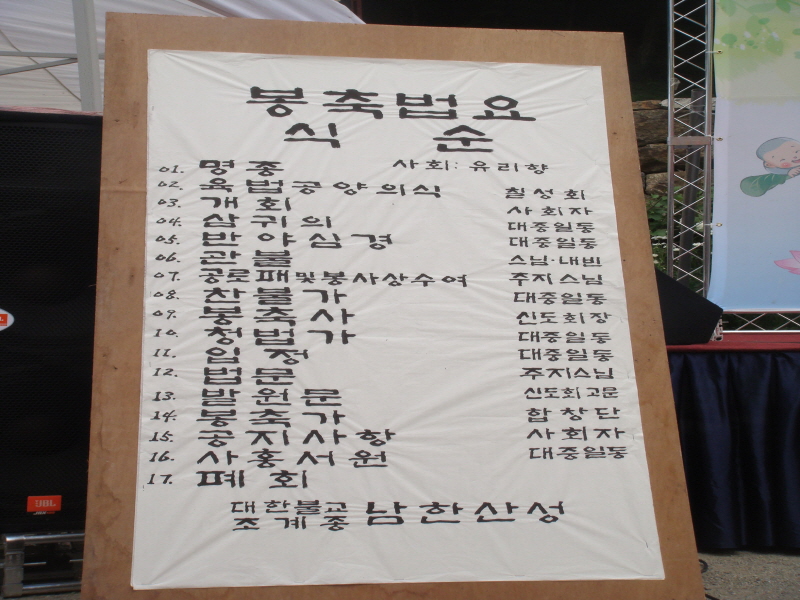 봉축법요
식 순
01. 명종 사회: 유리향
02. 육법공양의식 칠성회
03. 개회 사회자
04. 삼귀의 대중일동
05. 반야심경 대중일동
06. 관불 스님·내빈
07. 공로패및봉사상수여 주지스님
08. 찬불가 대중일동
09. 봉축사 신도회장
10. 청법가 대중일동
11. 입정 대중일동
12. 법문 주지스님
13. 발원문 신도회고문
14. 봉축가 합창단
15. 공지사항 사회자
16. 사홍서원 대중일동
17. 폐회
대한불교
조계종 남한산성
JBL